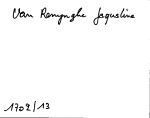 Van Remynghe Jaqueline
1702/13